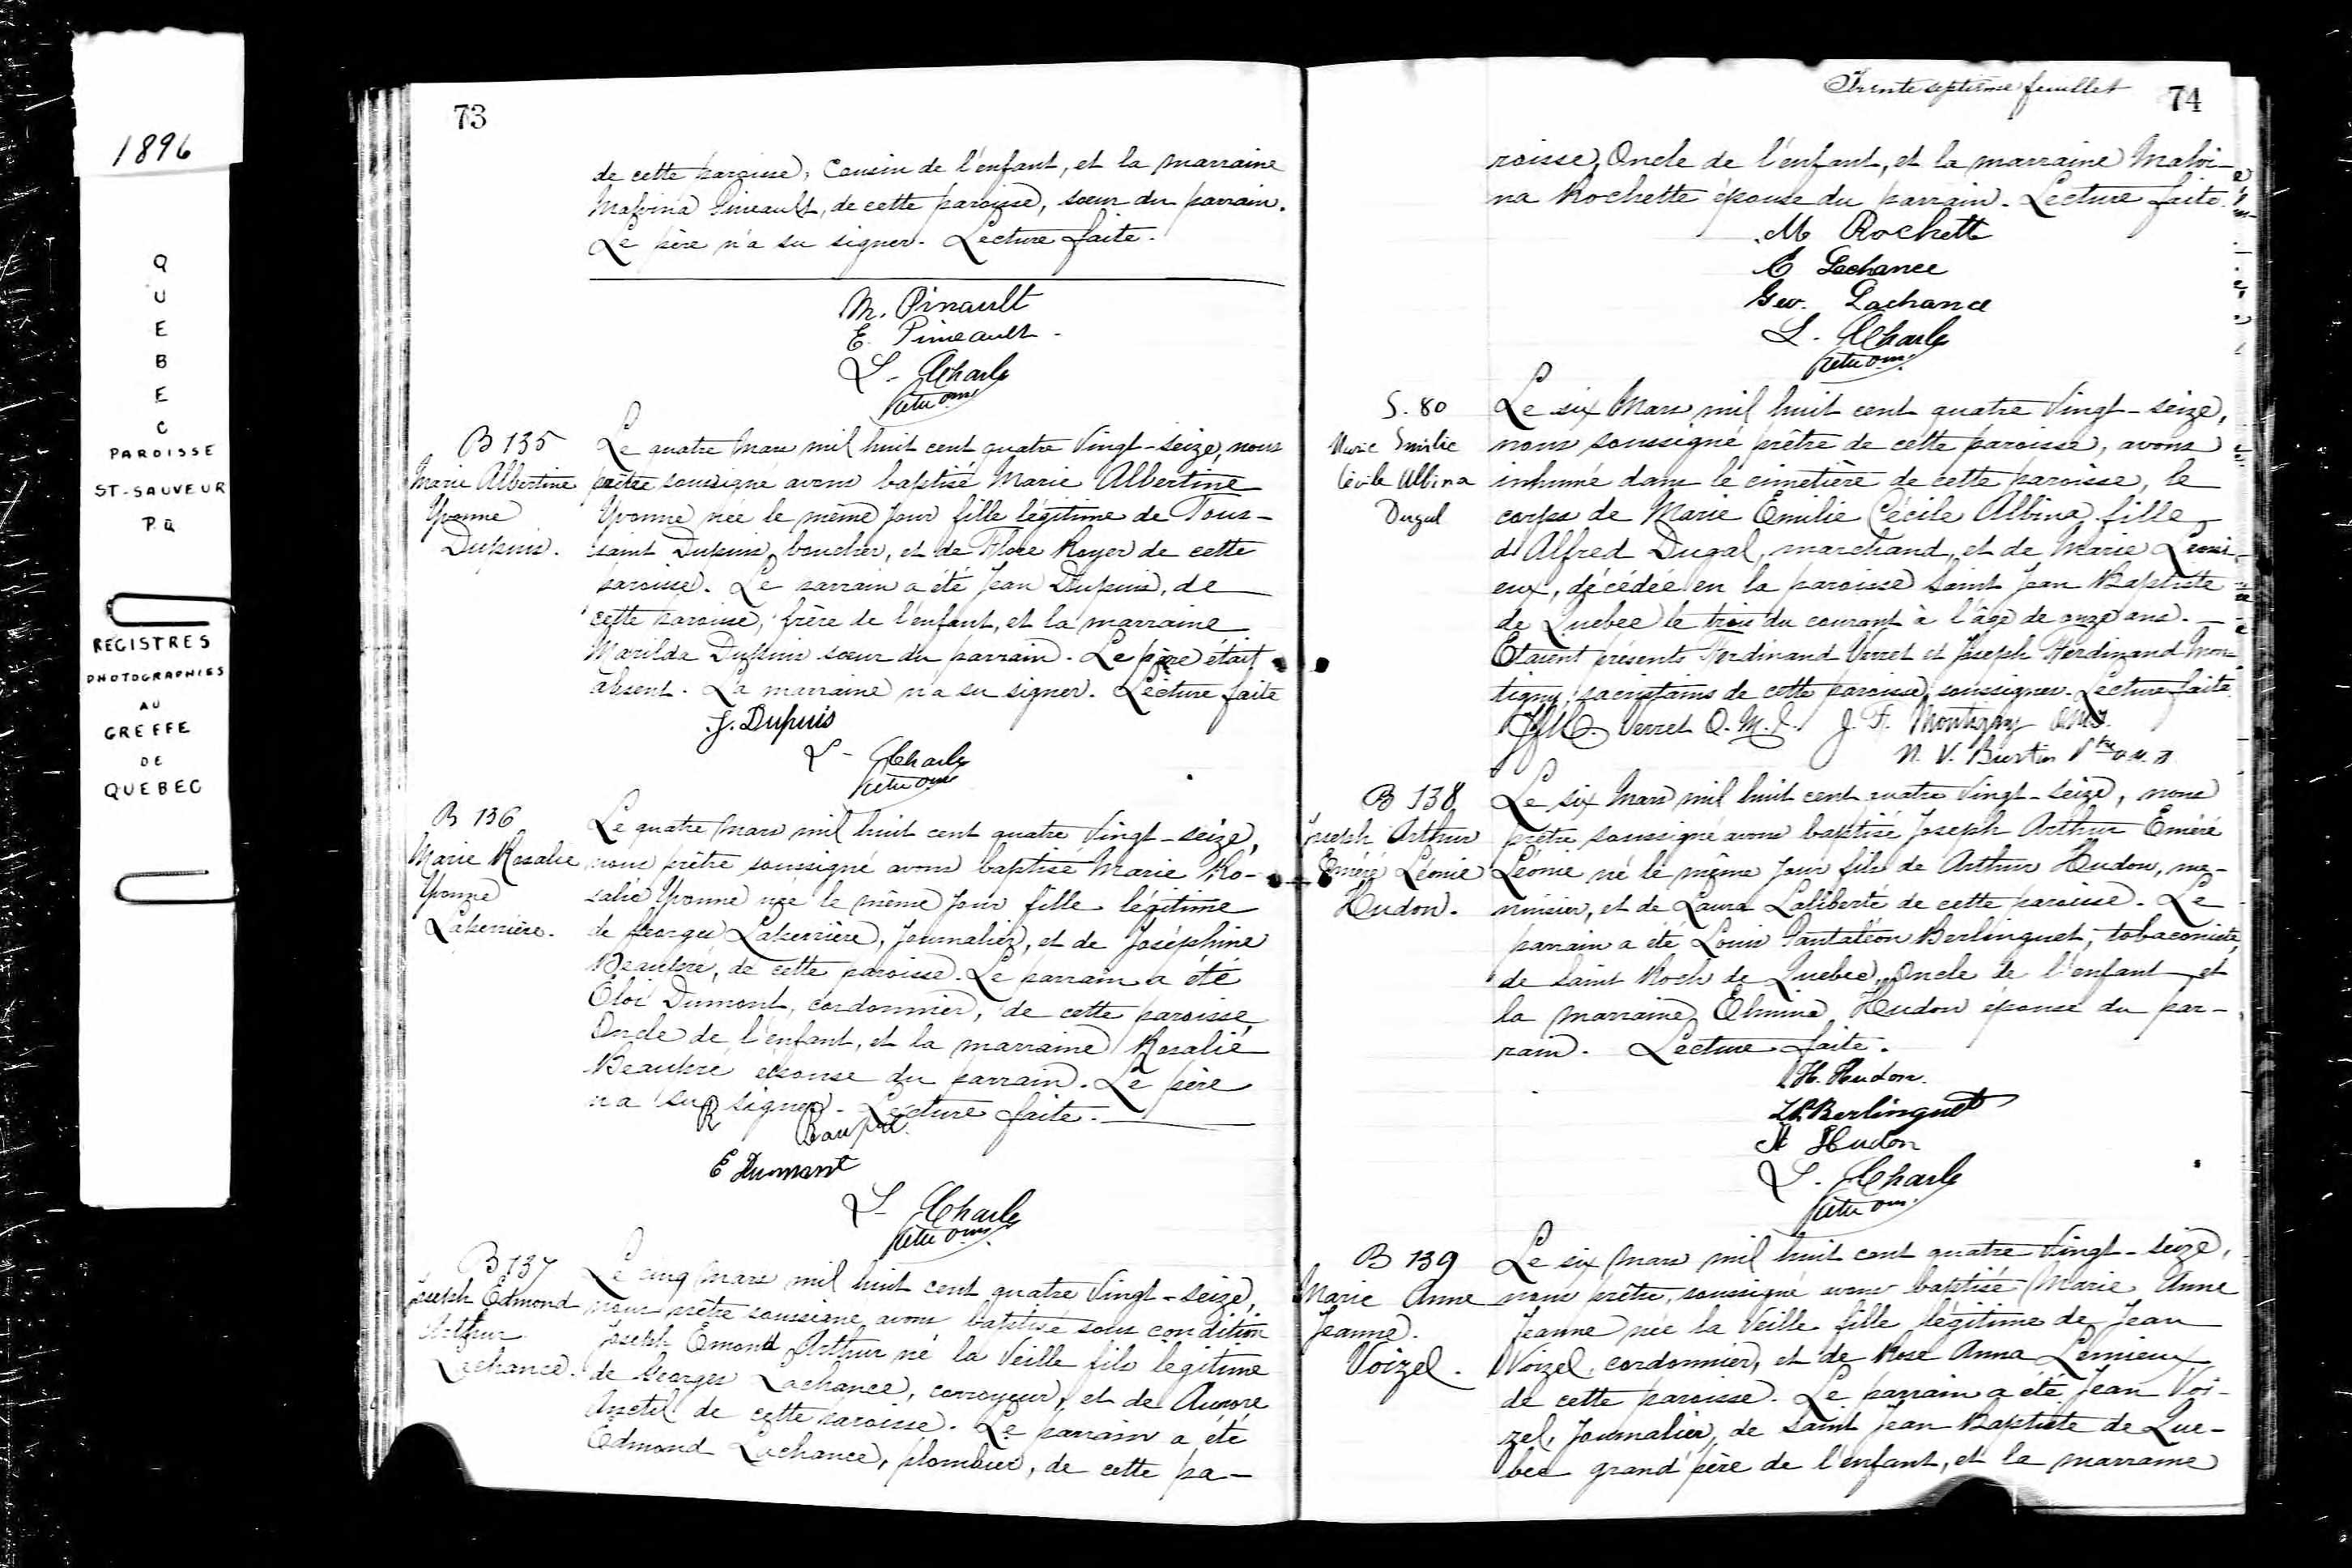 1896
QUEBEC
PAROISSE
ST-SAUVEUR
P.Q
REGISTRES
PHOTOGRAPHIES
AU
GREFFE
DE
QUEBEC
73
de cette paroisse, Cousin de l'enfant, et la marraine
Malvina Pineault, de cette paroisse, sœur du parrain.
Le père n'a su signer. Lecture faite.
M. Pinault
E. Pineault
L.
B 135
Marie Albertine
Yvonne
Dupuis.
Le quatre Mars mil huit cent quatre Vingt-seize, nous
prêtre soussigné avons baptisé Marie Albertine
Yvonne née le même Jour fille légitime de Tous-
saint Dupuis, boucher, et de Flore Royer de cette
paroisse. Le parrain a été Jean Dupuis, de
cette paroisse, frère de l'enfant, et la marraine
Marilda Dupuis sœur du parrain. Le père était
absent. La marraine n'a su signer. Lecture faite
J. Dupuis
L.
B 136
Marie Rosalie
Yvonne
Laperrière.
Le quatre Mars mil huit cent quatre Vingt-seize,
nous prêtre soussigné avons baptisé Marie Ro-
salie Yvonne née le même Jour fille légitime
de Georges Laperrière, Journalier, et de Joséphine
Beaupré, de cette paroisse. Le parrain a été
Eloi Dumont, cordonnier, de cette paroisse,
Oncle de l'enfant, et la marraine Rosalie
Beaupré épouse du parrain. Le père
n'a su signer. Lecture faite.
R Baupré
E Dumont
L.
B 137
Joseph Edmond
Arthur
Lachance.
Le cinq Mars mil huit cent quatre Vingt-seize,
nous prêtre soussigné avons baptisé sous condition
Joseph Emond Arthur né la Veille fils légitime
de Georges Lachance, corroyeur, et de Aurore
Anctil de cette paroisse. Le parrain a été
Edmond Lachance, plombier, de cette pa-
Trente septième feuillet 74
roisse, Oncle de l'enfant, et la marraine Malvi-
na Rochette épouse du parrain. Lecture faite.
M Rochett
E Lachance
Geo. Lachance
L.
S. 80
Marie Emilie
Cécile Albina
Dugal
Le six Mars mil huit cent quatre Vingt-seize,
nous soussigné prêtre de cette paroisse, avons
inhumé dans le cimetière de cette paroisse, le
corps de Marie Emilie Cécile Albina fille
d'Alfred Dugal, marchand, et de Marie
décédée en la paroisse Saint Jean Baptiste
de Quebec le trois du courant à l'âge de onze ans.
Etaient présents Ferdinand Verret et Joseph Ferdinand Mon-
tigny, sacristains de cette paroisse, soussignés. Lecture faite
Verret O.M.I. J. F. Montigny O.M.I.
N. V. Burtin Ptre o.m.i.
B 138
Joseph Arthur
Eméré Léonie
Hudon.
Le six Mars mil huit cent quatre Vingt-seize, nous
prêtre soussigné avons baptisé Joseph Arthur Eméré
Léonie né le même Jour fils de Arthur Hudon, me-
nuisier, et de Laura Laliberté de cette paroisse. Le
parrain a été Louis Pantaléon Berlinguet, tobaconiste,
de Saint Roch de Quebec, Oncle de l'enfant et
la Marraine Elmina Hudon épouse du par-
rain. Lecture faite.
H. Hudon.
L.P. Berlinguet
A Hudon
L.
B 139
Marie Anne
Jeanne.
Voizel.
Le six Mars mil huit cent quatre Vingt-seize,
nous prêtre, soussigné avons baptisé Marie Anne
Jeanne née la Veille fille légitime de Jean
Voizel, cordonnier, et de Rose Anna Lemieux
de cette paroisse. Le parrain a été Jean Voi-
zel, Journalier, de Saint Jean Baptiste de Que-
bec grand'père de l'enfant, et la marraine